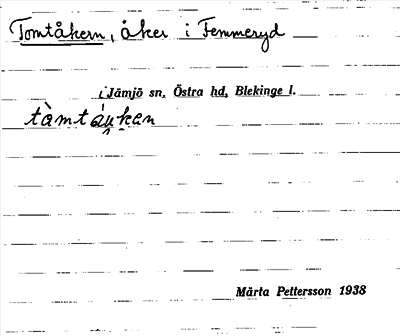 Tomtåkern, åker i Femmeryd
i Jämjö sn. Östra hd, Blekinge l.
tàmtáu̯ken
Märta Pettersson 1938